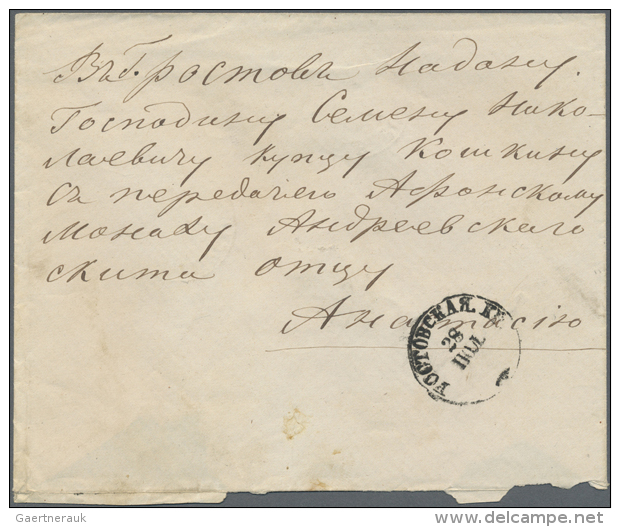 Въ Г. Ростовъ Надану.
Господину Семену Нико-
лаевичу купцу Кошкину
съ передачею Афонскому
монаху Андреевскаго
скита отцу
Анастасію
РОСТОВСКАЯ. К
28
ІЮЛ
Gaertnerauk
www.delcampe.net